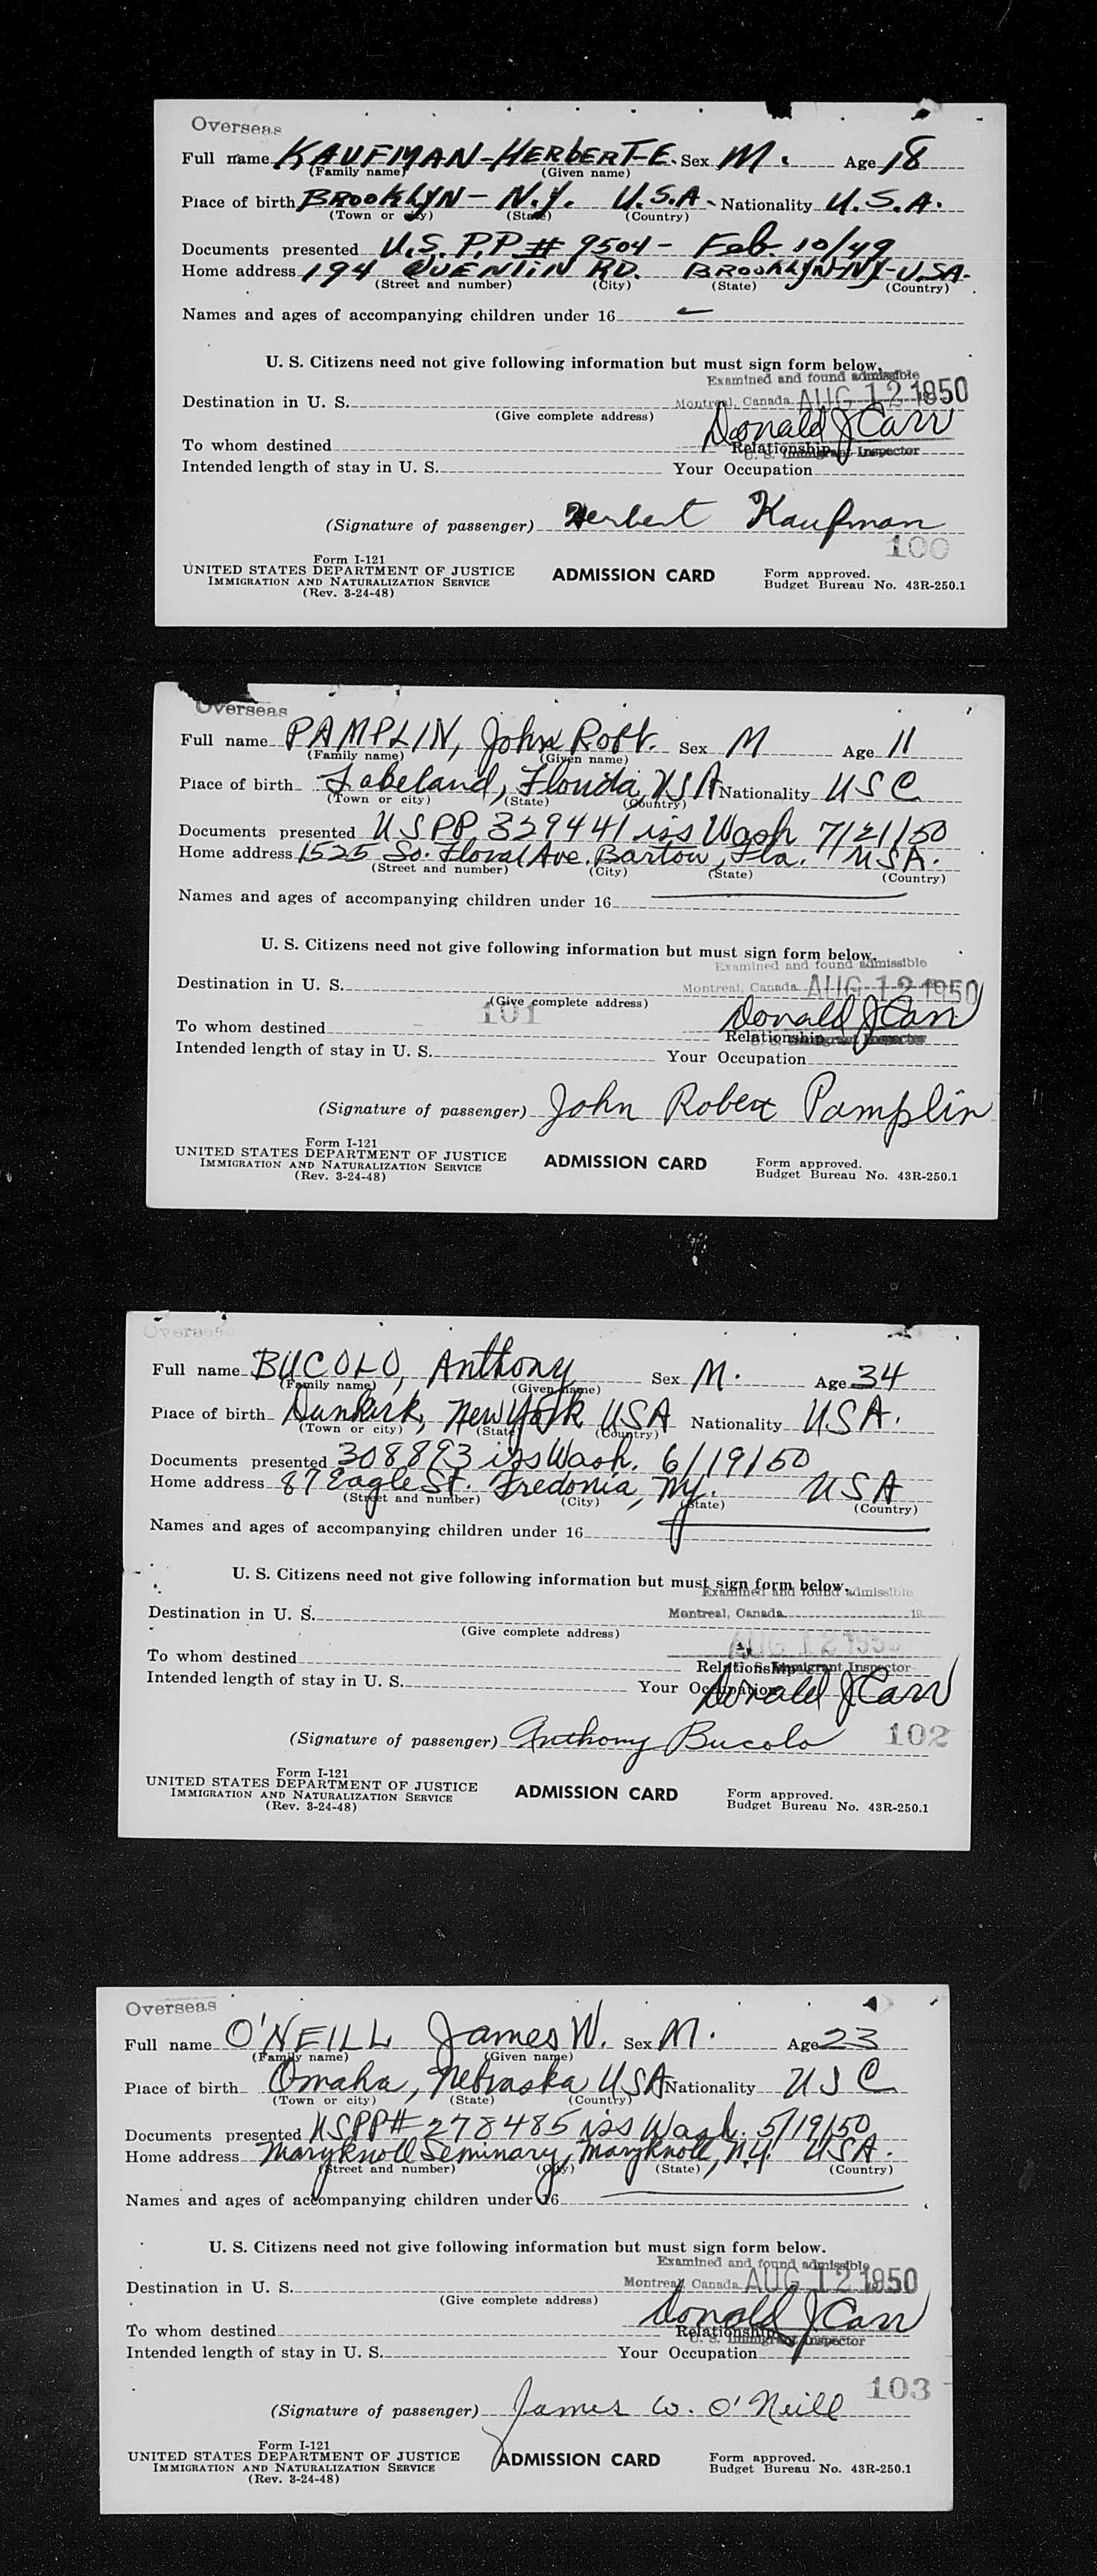 Overseas
Full name KAUFMAN-HERBERT-E. Sex M. Age 18
(Family name) (Given name)
Place of birth BROOKLYN - N.Y. U.S.A - Nationality U.S.A.
(Town or city) (State) (Country)
Documents presented U.S. P.P. # 9504 - Feb. 10/49
Home address 194 QUENTIN RD. BROOKLYN-NY-U.S.A.
(Street and number) (City) (State) (Country)
Names and ages of accompanying children under 16
U. S. Citizens need not give following information but must sign form below.
Examined and found admissible
Destination in U. S. Montreal, Canada AUG 12 1950
(Give complete address) Donald J Carr
To whom destined Relationship
U. S. Immigrant Inspector
Intended length of stay in U. S. Your Occupation
(Signature of passenger) Herbert Kaufman
100
Form I-121
UNITED STATES DEPARTMENT OF JUSTICE
IMMIGRATION AND NATURALIZATION SERVICE
(Rev. 3-24-48)
ADMISSION CARD
Form approved.
Budget Bureau No. 43R-250.1
Overseas
Full name PAMPLIN, John Robt. Sex M Age 11
(Family name) (Given name)
Place of birth Lakeland, Florida, USA Nationality USC
(Town or city) (State) (Country)
Documents presented USPP 329441 iss Wash 7/21/50
Home address 1525 So. Floral Ave. Bartow, Fla. USA.
(Street and number) (City) (State) (Country)
Names and ages of accompanying children under 16
U. S. Citizens need not give following information but must sign form below.
Examined and found admissible
Destination in U. S. Montreal, Canada AUG 12 1950
(Give complete address) Donald J Carr
101
To whom destined Relationship
U. S. Immigrant Inspector
Intended length of stay in U. S. Your Occupation
(Signature of passenger) John Robert Pamplin
Form I-121
UNITED STATES DEPARTMENT OF JUSTICE
IMMIGRATION AND NATURALIZATION SERVICE
(Rev. 3-24-48)
ADMISSION CARD
Form approved.
Budget Bureau No. 43R-250.1
Overseas
Full name BUCOLO, Anthony Sex M. Age 34
(Family name) (Given name)
Place of birth Dunkirk, New York USA Nationality USA.
(Town or city) (State) (Country)
Documents presented 308893 iss Wash. 6/19/50
Home address 87 Eagle St. Fredonia, Ny. USA
(Street and number) (City) (State) (Country)
Names and ages of accompanying children under 16
U. S. Citizens need not give following information but must sign form below.
Examined and found admissible
Destination in U. S. Montreal, Canada 19
(Give complete address)
AUG 12 1950
To whom destined Relationship
U. S. Immigrant Inspector
Intended length of stay in U. S. Your Occupation
Donald J Carr
(Signature of passenger) Anthony Bucolo 102
Form I-121
UNITED STATES DEPARTMENT OF JUSTICE
IMMIGRATION AND NATURALIZATION SERVICE
(Rev. 3-24-48)
ADMISSION CARD
Form approved.
Budget Bureau No. 43R-250.1
Overseas
Full name O'NEILL James W. Sex M. Age 23
(Family name) (Given name)
Place of birth Omaha, Nebraska USA Nationality USC
(Town or city) (State) (Country)
Documents presented USPP# 278485 iss Wash. 5/19/50
Home address Maryknoll Seminary, Maryknoll, N.Y. USA.
(Street and number) (City) (State) (Country)
Names and ages of accompanying children under 16
U. S. Citizens need not give following information but must sign form below.
Examined and found admissible
Destination in U. S. Montreal, Canada AUG 12 1950
(Give complete address) Donald J Carr
To whom destined Relationship
U. S. Immigrant Inspector
Intended length of stay in U. S. Your Occupation
103
(Signature of passenger) James W. O'Neill
Form I-121
UNITED STATES DEPARTMENT OF JUSTICE
IMMIGRATION AND NATURALIZATION SERVICE
(Rev. 3-24-48)
ADMISSION CARD
Form approved.
Budget Bureau No. 43R-250.1